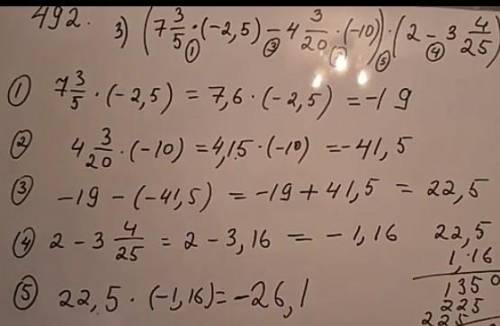 492. 3) (7 3/5 ① · (-2,5) ③ - 4 3/20 ② · (-10)) ⑤ · (2 ④ - 3 4/25)
① 7 3/5 · (-2,5) = 7,6 · (-2,5) = -19
② 4 3/20 · (-10) = 4,15 · (-10) = -41,5
③ -19 - (-41,5) = -19 + 41,5 = 22,5
④ 2 - 3 4/25 = 2 - 3,16 = -1,16
⑤ 22,5 · (-1,16) = -26,1
22,5
1,16
1350
225
225